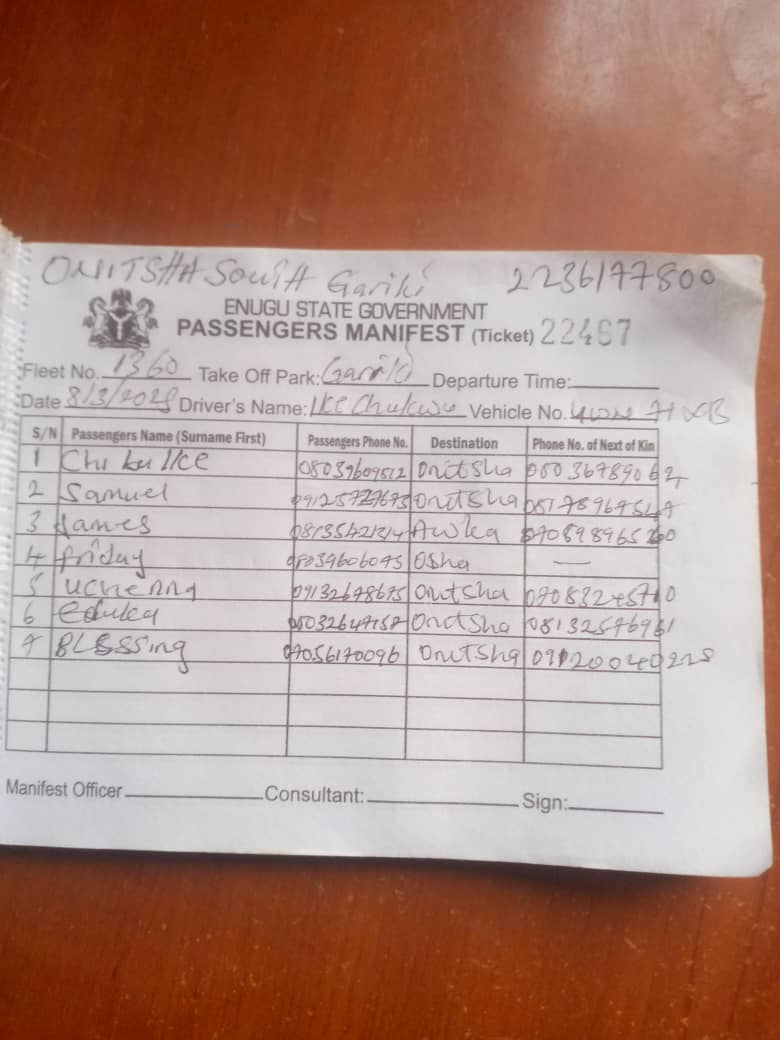 ONITSHA South Gariki 2236177800
ENUGU STATE GOVERNMENT
PASSENGERS MANIFEST (Ticket) 22467
Fleet No. 1360 Take Off Park: Gariki Departure Time:
Date 8/3/2025 Driver's Name: IKE Chukwu Vehicle No.
S/N Passengers Name (Surname First) Passengers Phone No. Destination Phone No. of Next of Kin
1 08039609512 Onitsha
2 Samuel 09125727673 Onitsha
3 James Awka
4 friday 08039606075 Osha —
5 uchenna 09132678675 Onitsha
6 Onitsha 08132576961
7 BLESSing 07056170096 Onitsha
Manifest Officer Consultant: Sign: